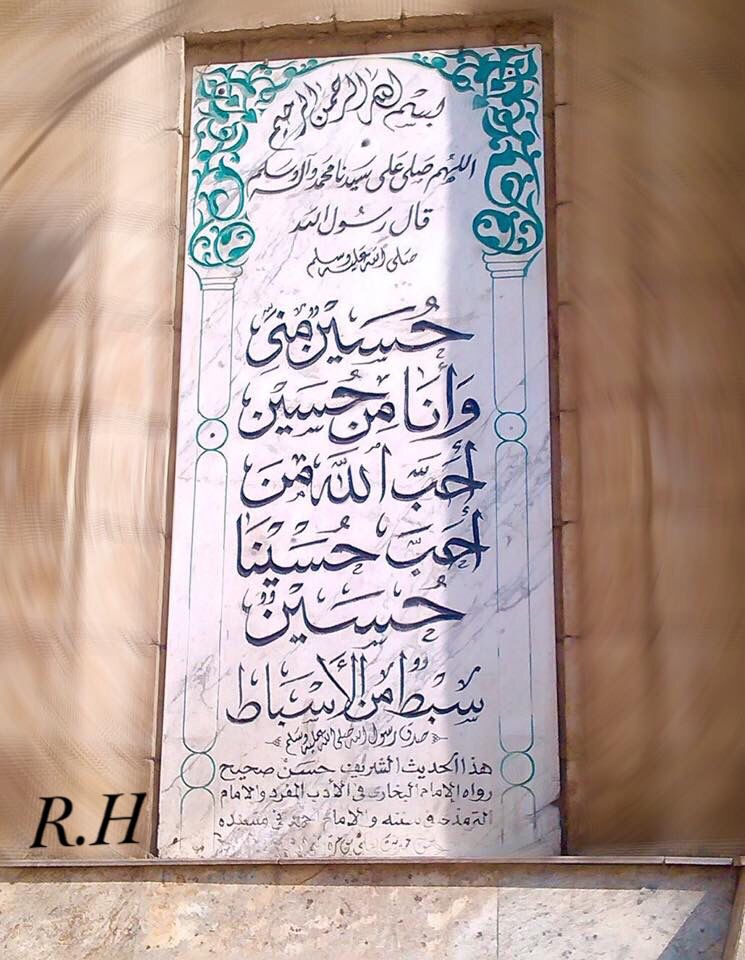 بسم الله الرحمن الرحيم
اللهم صلى على سيدنا محمد وآله وسلم
قال رسول الله
صلى الله عليه وسلم
حُسَيْنٌ مِنّى
وَأَنَا مِن حُسَين
أَحَبَّ اللهَ مَن
أَحَبَّ حُسَيْنَا
حُسَيْنٌ
سِبْطٌ مِنَ الأَسْبَاط
صدق رسول الله صلى الله عليه وسلم
هذا الحديث الشريف حسن صحيح
رواه الإمام البخارى فى الأدب المفرد والإمام
الترمذى فى سننه والإمام احمد فى مسنده
R.H